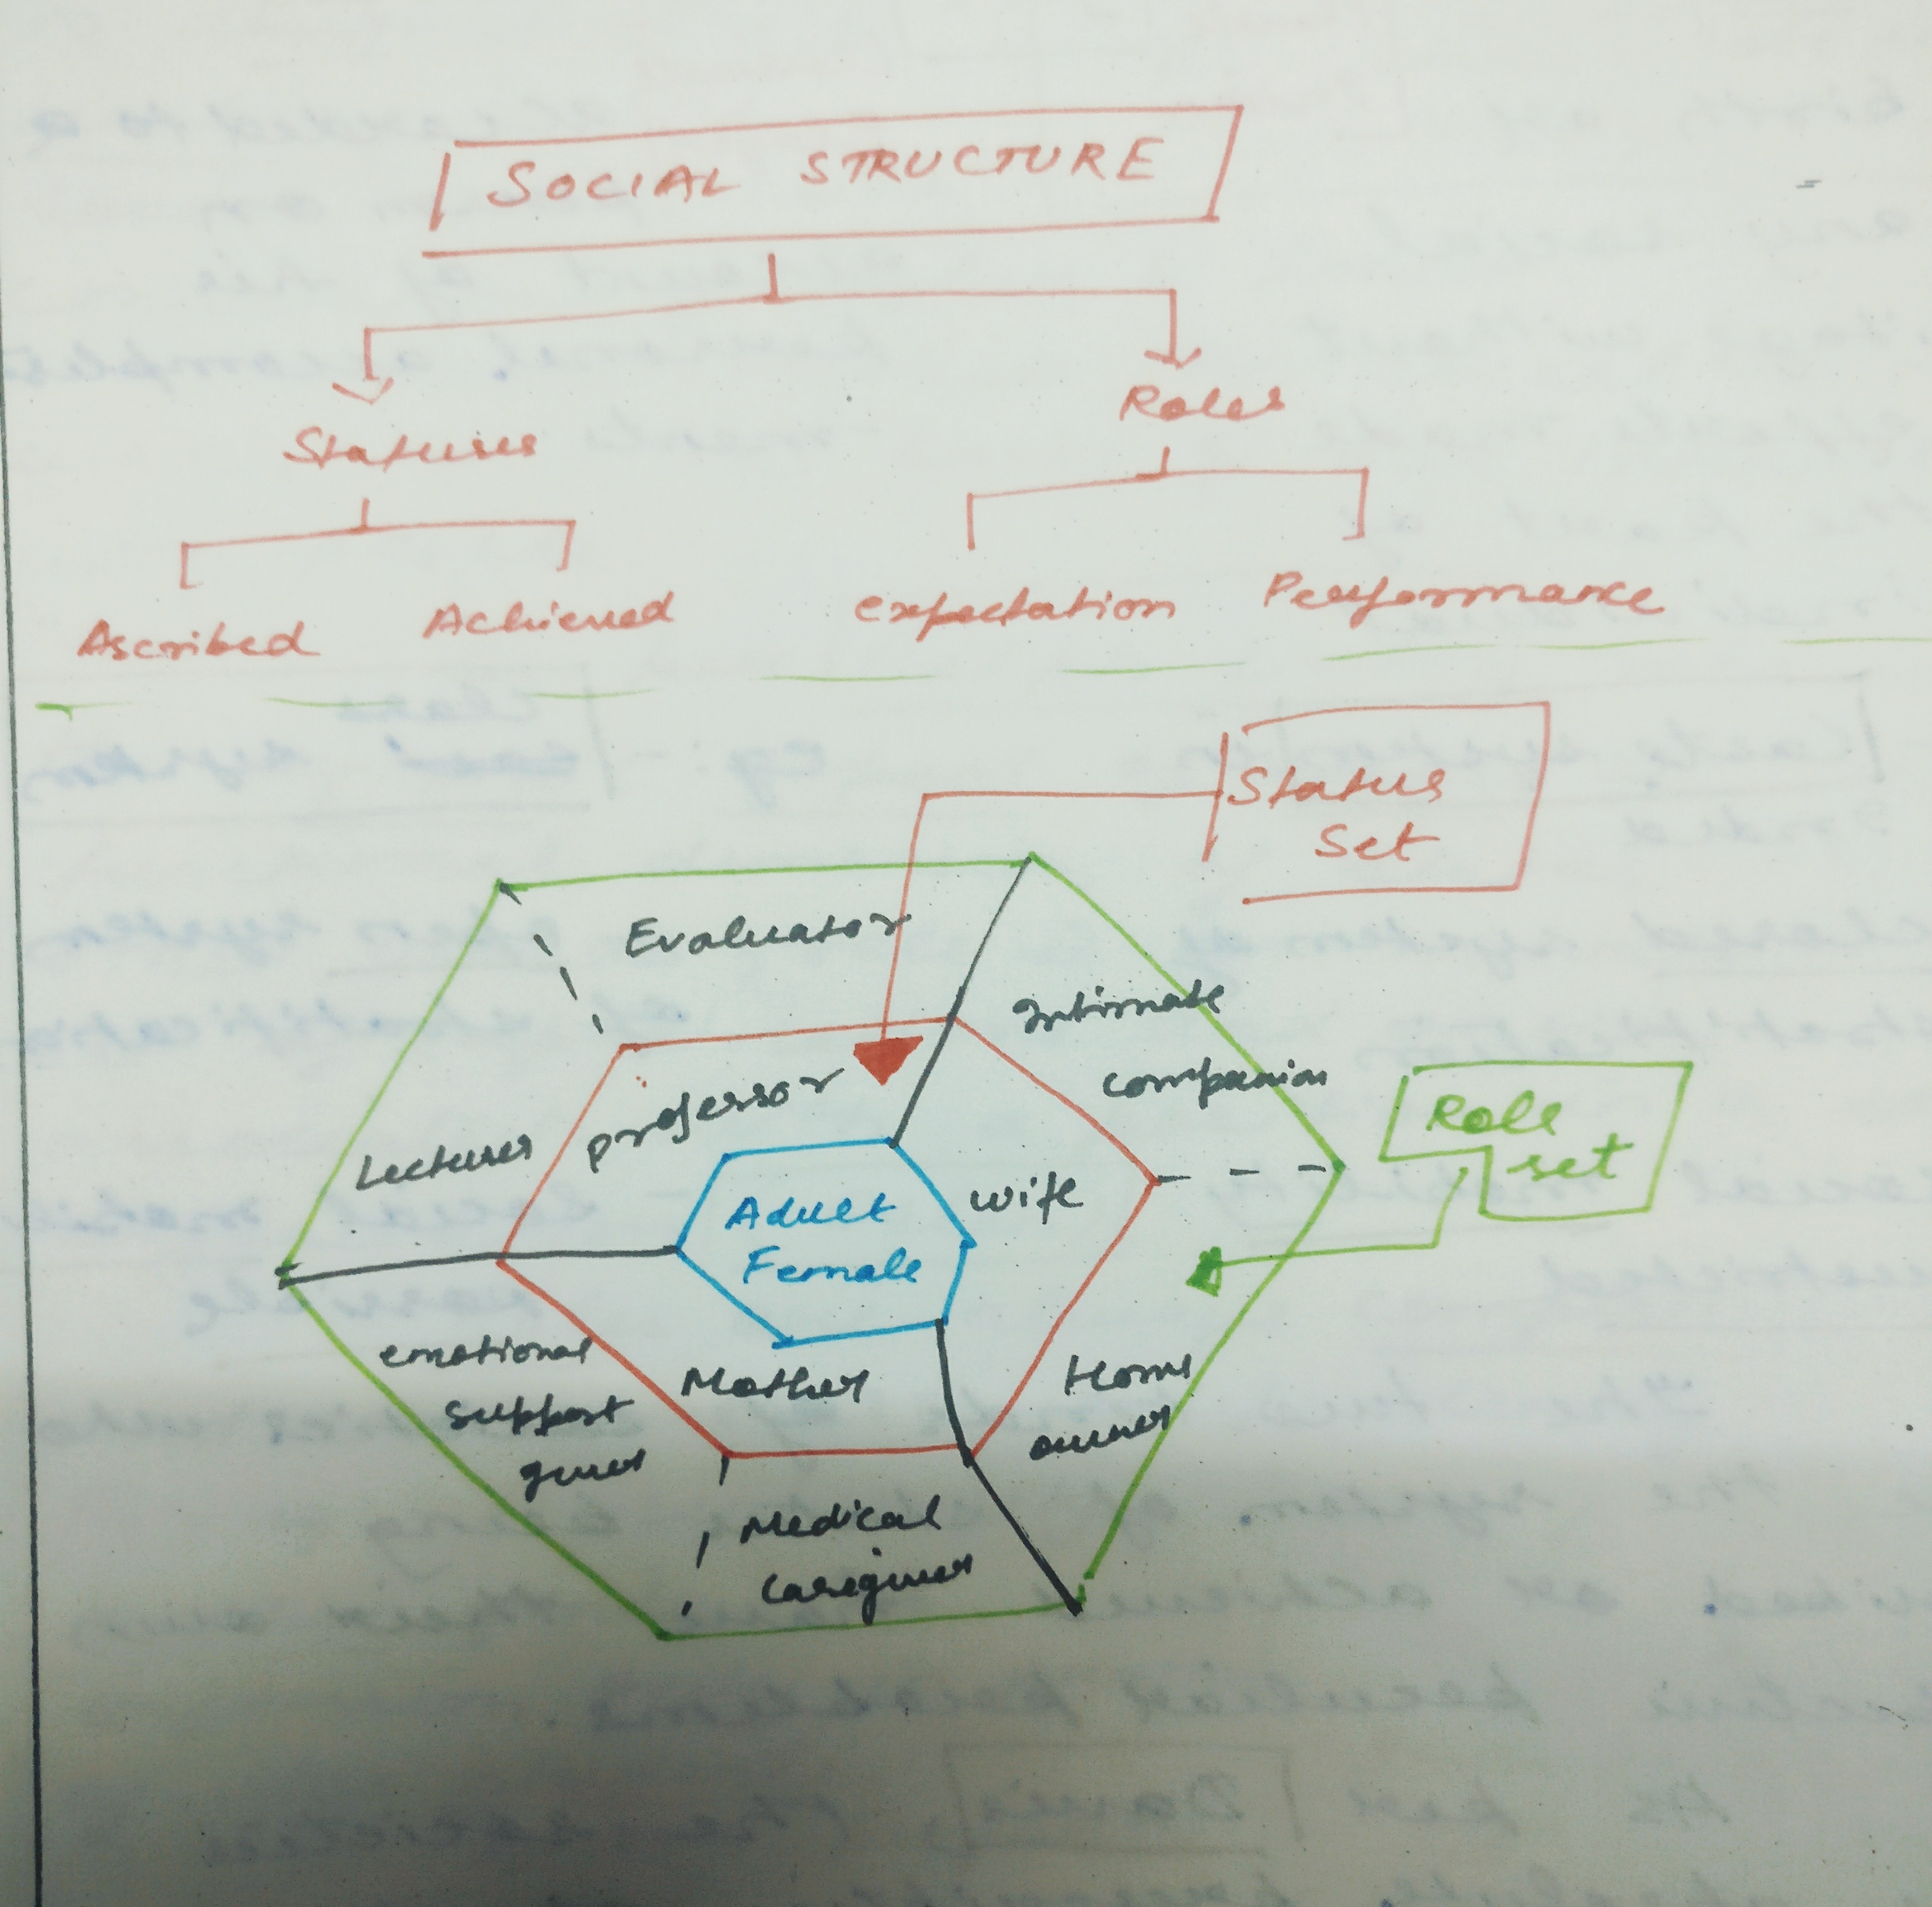 SOCIAL STRUCTURE
Statuses
Roles
Ascribed
Achieved
expectation
Performance
Status
Set
Evaluator
Intimate
companion
Lecturer
professor
wife
Role
set
Adult
Female
emotional
support
giver
Mother
Home
owner
Medical
caregiver